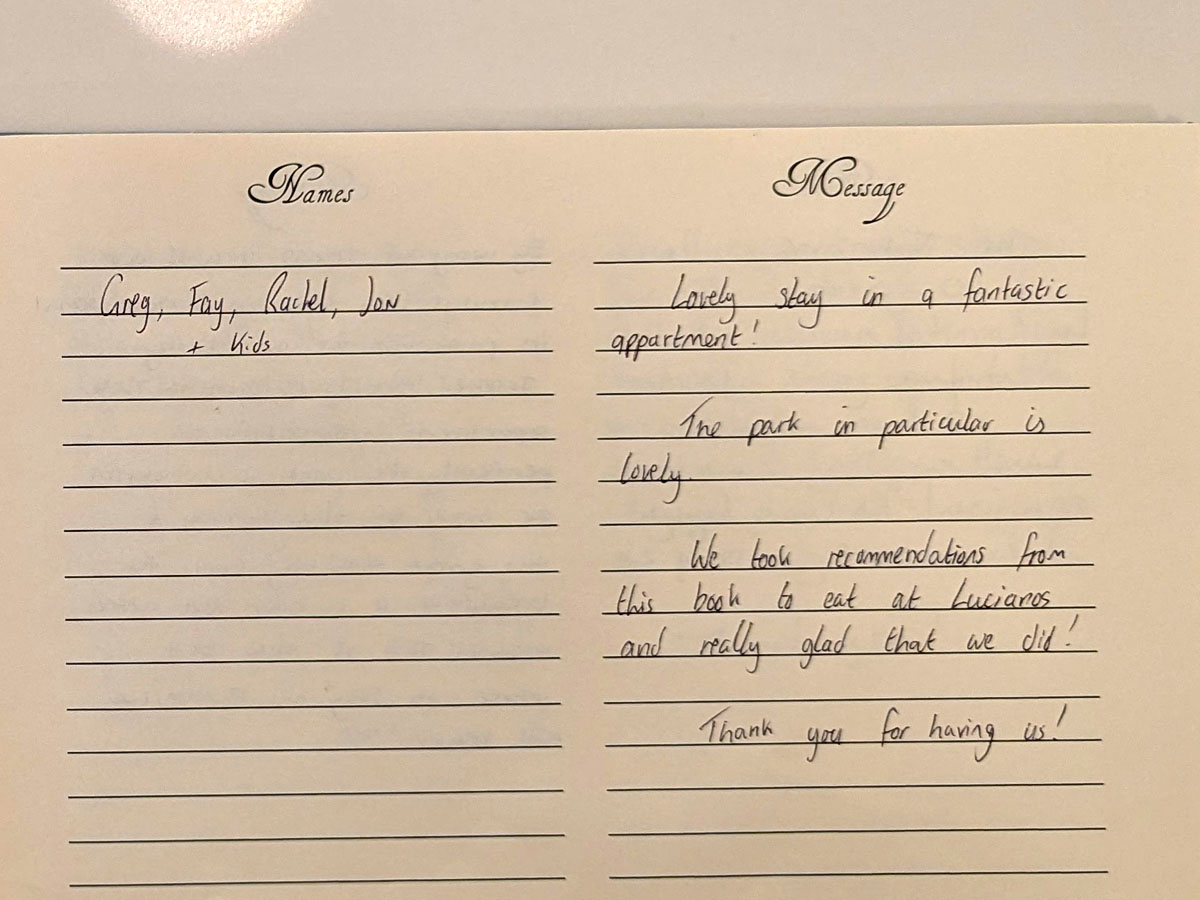 Names
Greg, Fay, Rachel, Jon
+ Kids
Message
Lovely stay in a fantastic
appartment!
The park in particular is
lovely.
We took recommendations from
this book to eat at Lucianos
and really glad that we did!
Thank you for having us!